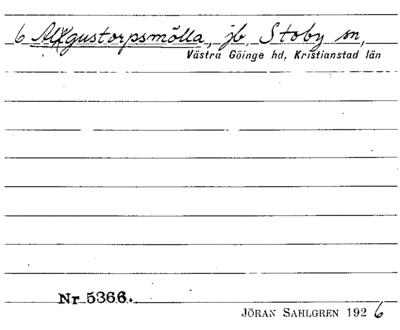 6 Augustorpsmölla, jb, Stoby sn,
Västra Göinge hd, Kristianstad län
Nr 5366.
JÖRAN SAHLGREN 1926